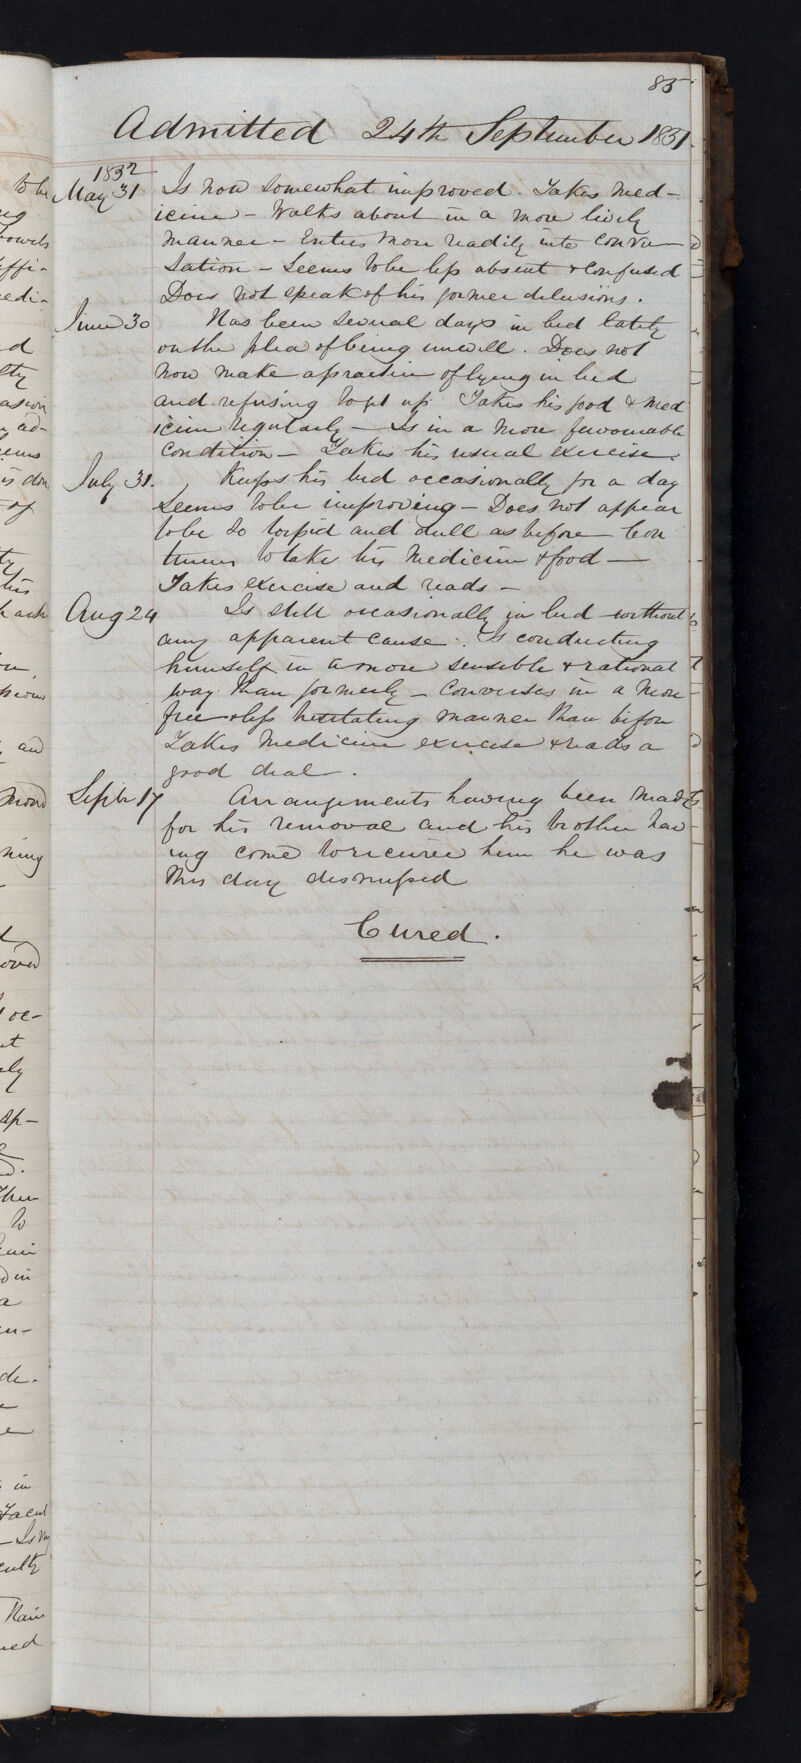 85
Admitted 24th September 1831.
1832
May 31 Is now somewhat improved. Takes med-
icine - Walks about in a more lively
manner - Enters more readily into conver-
sation - Seems to be less absent & confused
Does not speak of his former delusions.
June 30 Has been several days in bed lately
on the plea of being unwell. Does not
now make a practice of lying in bed
and refusing to get up. Takes his food & med
icine regularly - Is in a more favourable
condition - Takes his usual exercise.
July 31. Keeps his bed occasionally for a day
Seems to be improving - Does not appear
to be so torpid and dull as before - Con
tinues to take his medicine & food -
Takes exercise and reads -
Aug 24 Is still occasionally in bed without
any apparent cause. Is conducting
himself in a more sensible & rational
way than formerly - Converses in a more
free & less hesitating manner than before
Takes medicine exercise & reads a
good deal.
Septr 17 Arrangements having been made
for his removal and his brother hav
ing come to receive him he was
this day dismissed
Cured.